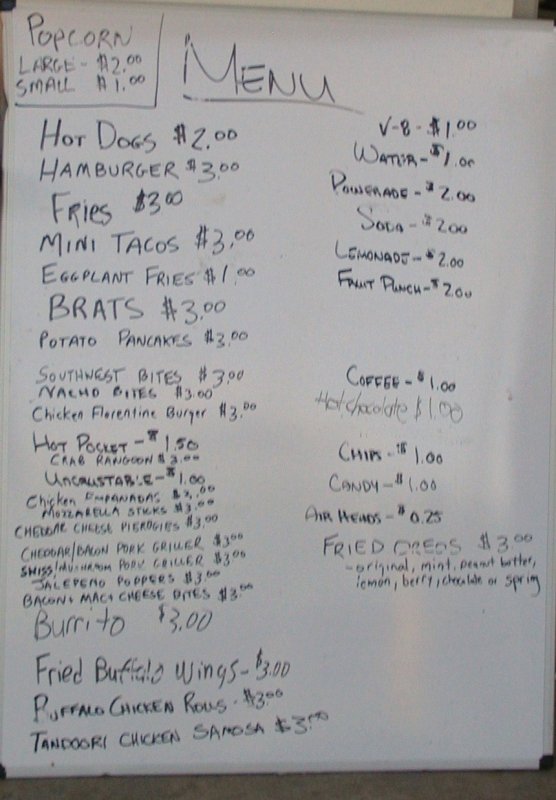 POPCORN
LARGE - $2.00
SMALL $1.00
MENU
HOT DOGS $2.00
HAMBURGER $3.00
FRIES $3.00
MINI TACOS $3.00
EGGPLANT FRIES $1.00
BRATS $3.00
POTATO PANCAKES $3.00
SOUTHWEST BITES $3.00
NACHO BITES $3.00
Chicken Florentine Burger $3.00
HOT POCKET - $1.50
CRAB RANGOON $3.00
UNCRUSTABLE - $1.00
Chicken EMPANADAS $3.00
MOZZARELLA STICKS $3.00
CHEDDAR CHEESE PIEROGIES $3.00
CHEDDAR/BACON PORK GRILLER $3.00
SWISS/MUSHROOM PORK GRILLER $3.00
JALEPENO POPPERS $3.00
BACON + MAC + CHEESE BITES $3.00
Burrito $3.00
Fried Buffalo Wings - $3.00
BUFFALO CHICKEN ROLLS - $3.00
TANDOORI CHICKEN SAMOSA $3.00
V-8 - $1.00
WATER - $1.00
POWERADE - $2.00
SODA - $2.00
LEMONADE - $2.00
FRUIT PUNCH - $2.00
COFFEE - $1.00
Hot chocolate $1.00
CHIPS - $1.00
CANDY - $1.00
AIR HEADS - $0.25
FRIED OREOS $3.00
- original, mint, peanut butter,
lemon, berry, chocolate or spring